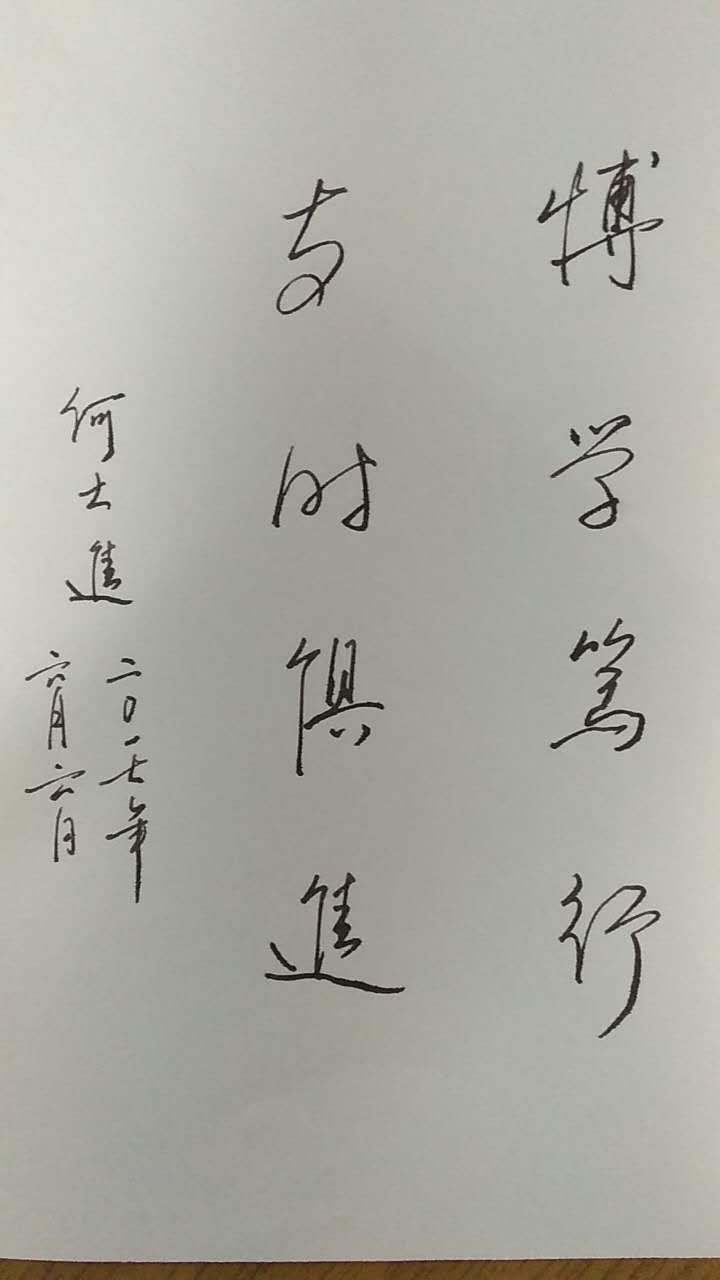 博学笃行
与时俱進
何士進
二〇一七年
六月六日